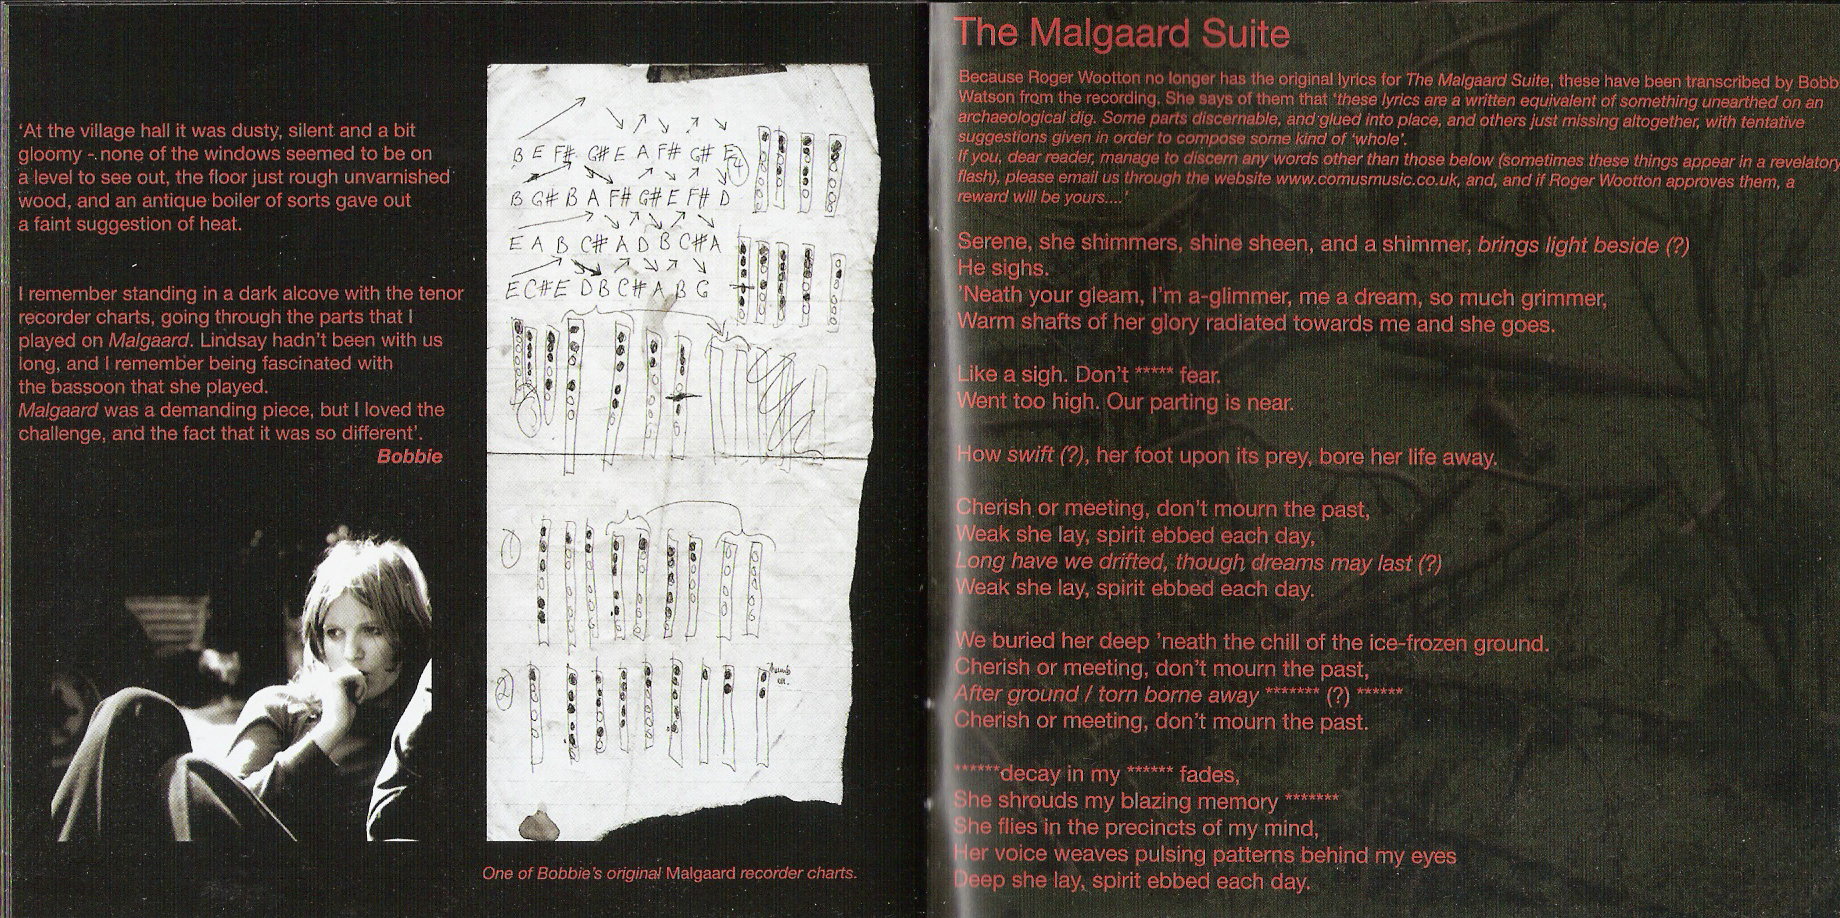 'At the village hall it was dusty, silent and a bit
gloomy - none of the windows seemed to be on
a level to see out, the floor just rough unvarnished
wood, and an antique boiler of sorts gave out
a faint suggestion of heat.
I remember standing in a dark alcove with the tenor
recorder charts, going through the parts that I
played on Malgaard. Lindsay hadn't been with us
long, and I remember being fascinated with
the bassoon that she played.
Malgaard was a demanding piece, but I loved the
challenge, and the fact that it was so different'.
Bobbie
B E F# G# E A F# G# E
4
B G# B A F# G# E F# D
E A B C# A D B C# A
E C# E D B C# A B G
1
2
One of Bobbie's original Malgaard recorder charts.
The Malgaard Suite
Because Roger Wootton no longer has the original lyrics for The Malgaard Suite, these have been transcribed by Bobb
Watson from the recording. She says of them that 'these lyrics are a written equivalent of something unearthed on an
archaeological dig. Some parts discernable, and glued into place, and others just missing altogether, with tentative
suggestions given in order to compose some kind of 'whole'.
If you, dear reader, manage to discern any words other than those below (sometimes these things appear in a revelatory
flash), please email us through the website www.comusmusic.co.uk, and, and if Roger Wootton approves them, a
reward will be yours....'
Serene, she shimmers, shine sheen, and a shimmer, brings light beside (?)
He sighs.
'Neath your gleam, I'm a-glimmer, me a dream, so much grimmer,
Warm shafts of her glory radiated towards me and she goes.
Like a sigh. Don't ***** fear.
Went too high. Our parting is near.
How swift (?), her foot upon its prey, bore her life away.
Cherish or meeting, don't mourn the past,
Weak she lay, spirit ebbed each day,
Long have we drifted, though dreams may last (?)
Weak she lay, spirit ebbed each day.
We buried her deep 'neath the chill of the ice-frozen ground.
Cherish or meeting, don't mourn the past,
After ground / torn borne away ******* (?) ******
Cherish or meeting, don't mourn the past.
******decay in my ****** fades,
She shrouds my blazing memory *******
She flies in the precincts of my mind,
Her voice weaves pulsing patterns behind my eyes
Deep she lay, spirit ebbed each day.